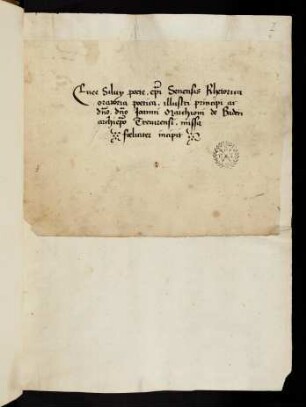 Enee Siluy poete . epi Senensis Rhetorica
oratoria poetica . illustri principi ac
dno . dno Joanni Marchioni de Baden
archiepo Treuerensi . missa
feliciter incipit